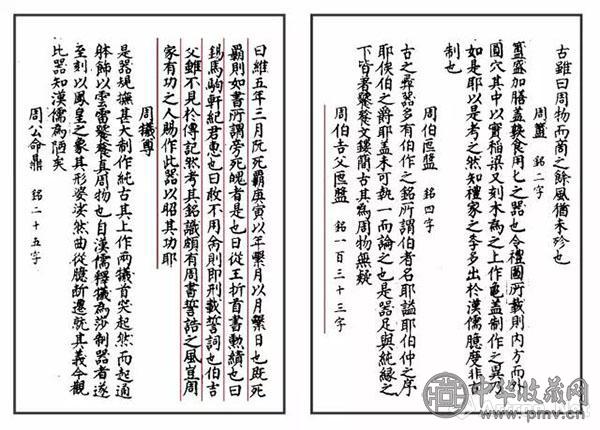 古雖曰周物而商之餘風猶未殄也
周簠 銘二字
簠盛加膳簋食用匕之器也今禮圖所載則內方而外
圓穴其中以實稻粱又刻木為之上作龜蓋制作之異乃
如是耶以是考之然知禮家之學多出於漢儒臆度非古
制也
周伯匜盤 銘四字
古之彞器多有伯作之銘所謂伯者名耶謚耶伯仲之序
耶侯伯之爵耶蓋未可執一而論之也是器足與純緣之
下皆著饕餮文鏤簡古其為周物無疑
周伯吉父匜盤 銘一百三十三字
曰維五年三月既死霸庚寅以年繫月以月繫日也既死
霸則如書所謂旁死魄者是也曰從王折首書勲績也曰
錫馬駒軒紀君惠也曰敢不用命則即刑載誓詞也伯吉
父雖不見於傳記然考其銘識頗有周書誓誥之風豈周
家有功之人賜作此器以昭其功耶
周犧尊
是器規撫甚大制作純古其上作兩犧首突起然而起通
體飾以雲雷饕餮真周物也自漢儒釋犧為莎制器者遂
至刻以鳳皇之象其形娑然曲從臆斷遷就其義今觀
此器知漢儒為陋矣
周公命鼎 銘二十五字
中华收藏网
www.pmv.cn